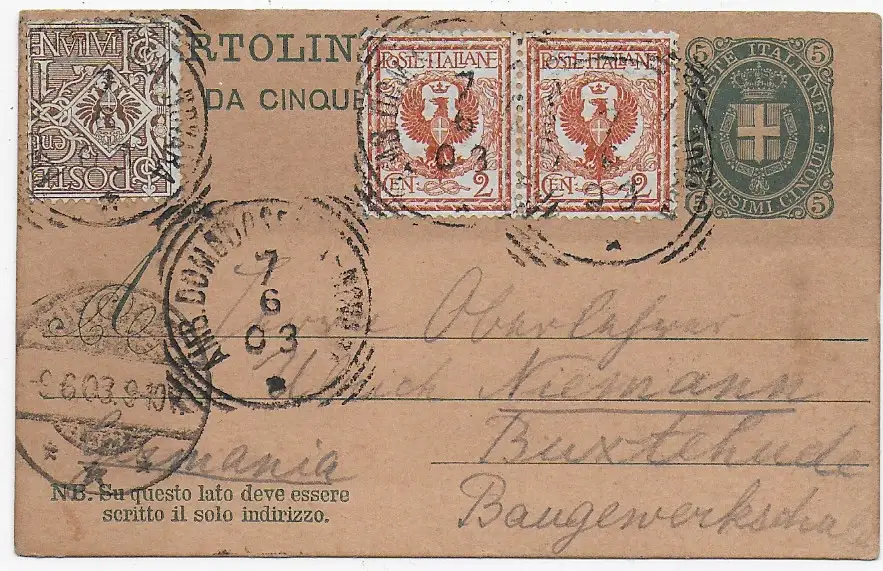 RTOLIN
DA CINQUE
POSTE ITALIANE
CENT 1
POSTE·ITALIANE
CEN. 2
POSTE·ITALIANE
CEN. 2
5 5
POSTE ITALIANE
CENTESIMI CINQUE
5 5
NOVARA
7
6
03
7
6
03
AMB. DOMODOSS
NOVARA
7
6
03
Herrn Oberlehrer
9.6.03.8-10
Ulrich Niemann
Germania
Buxtehude
NB. Su questo lato deve essere
scritto il solo indirizzo.
Baugewerkschule